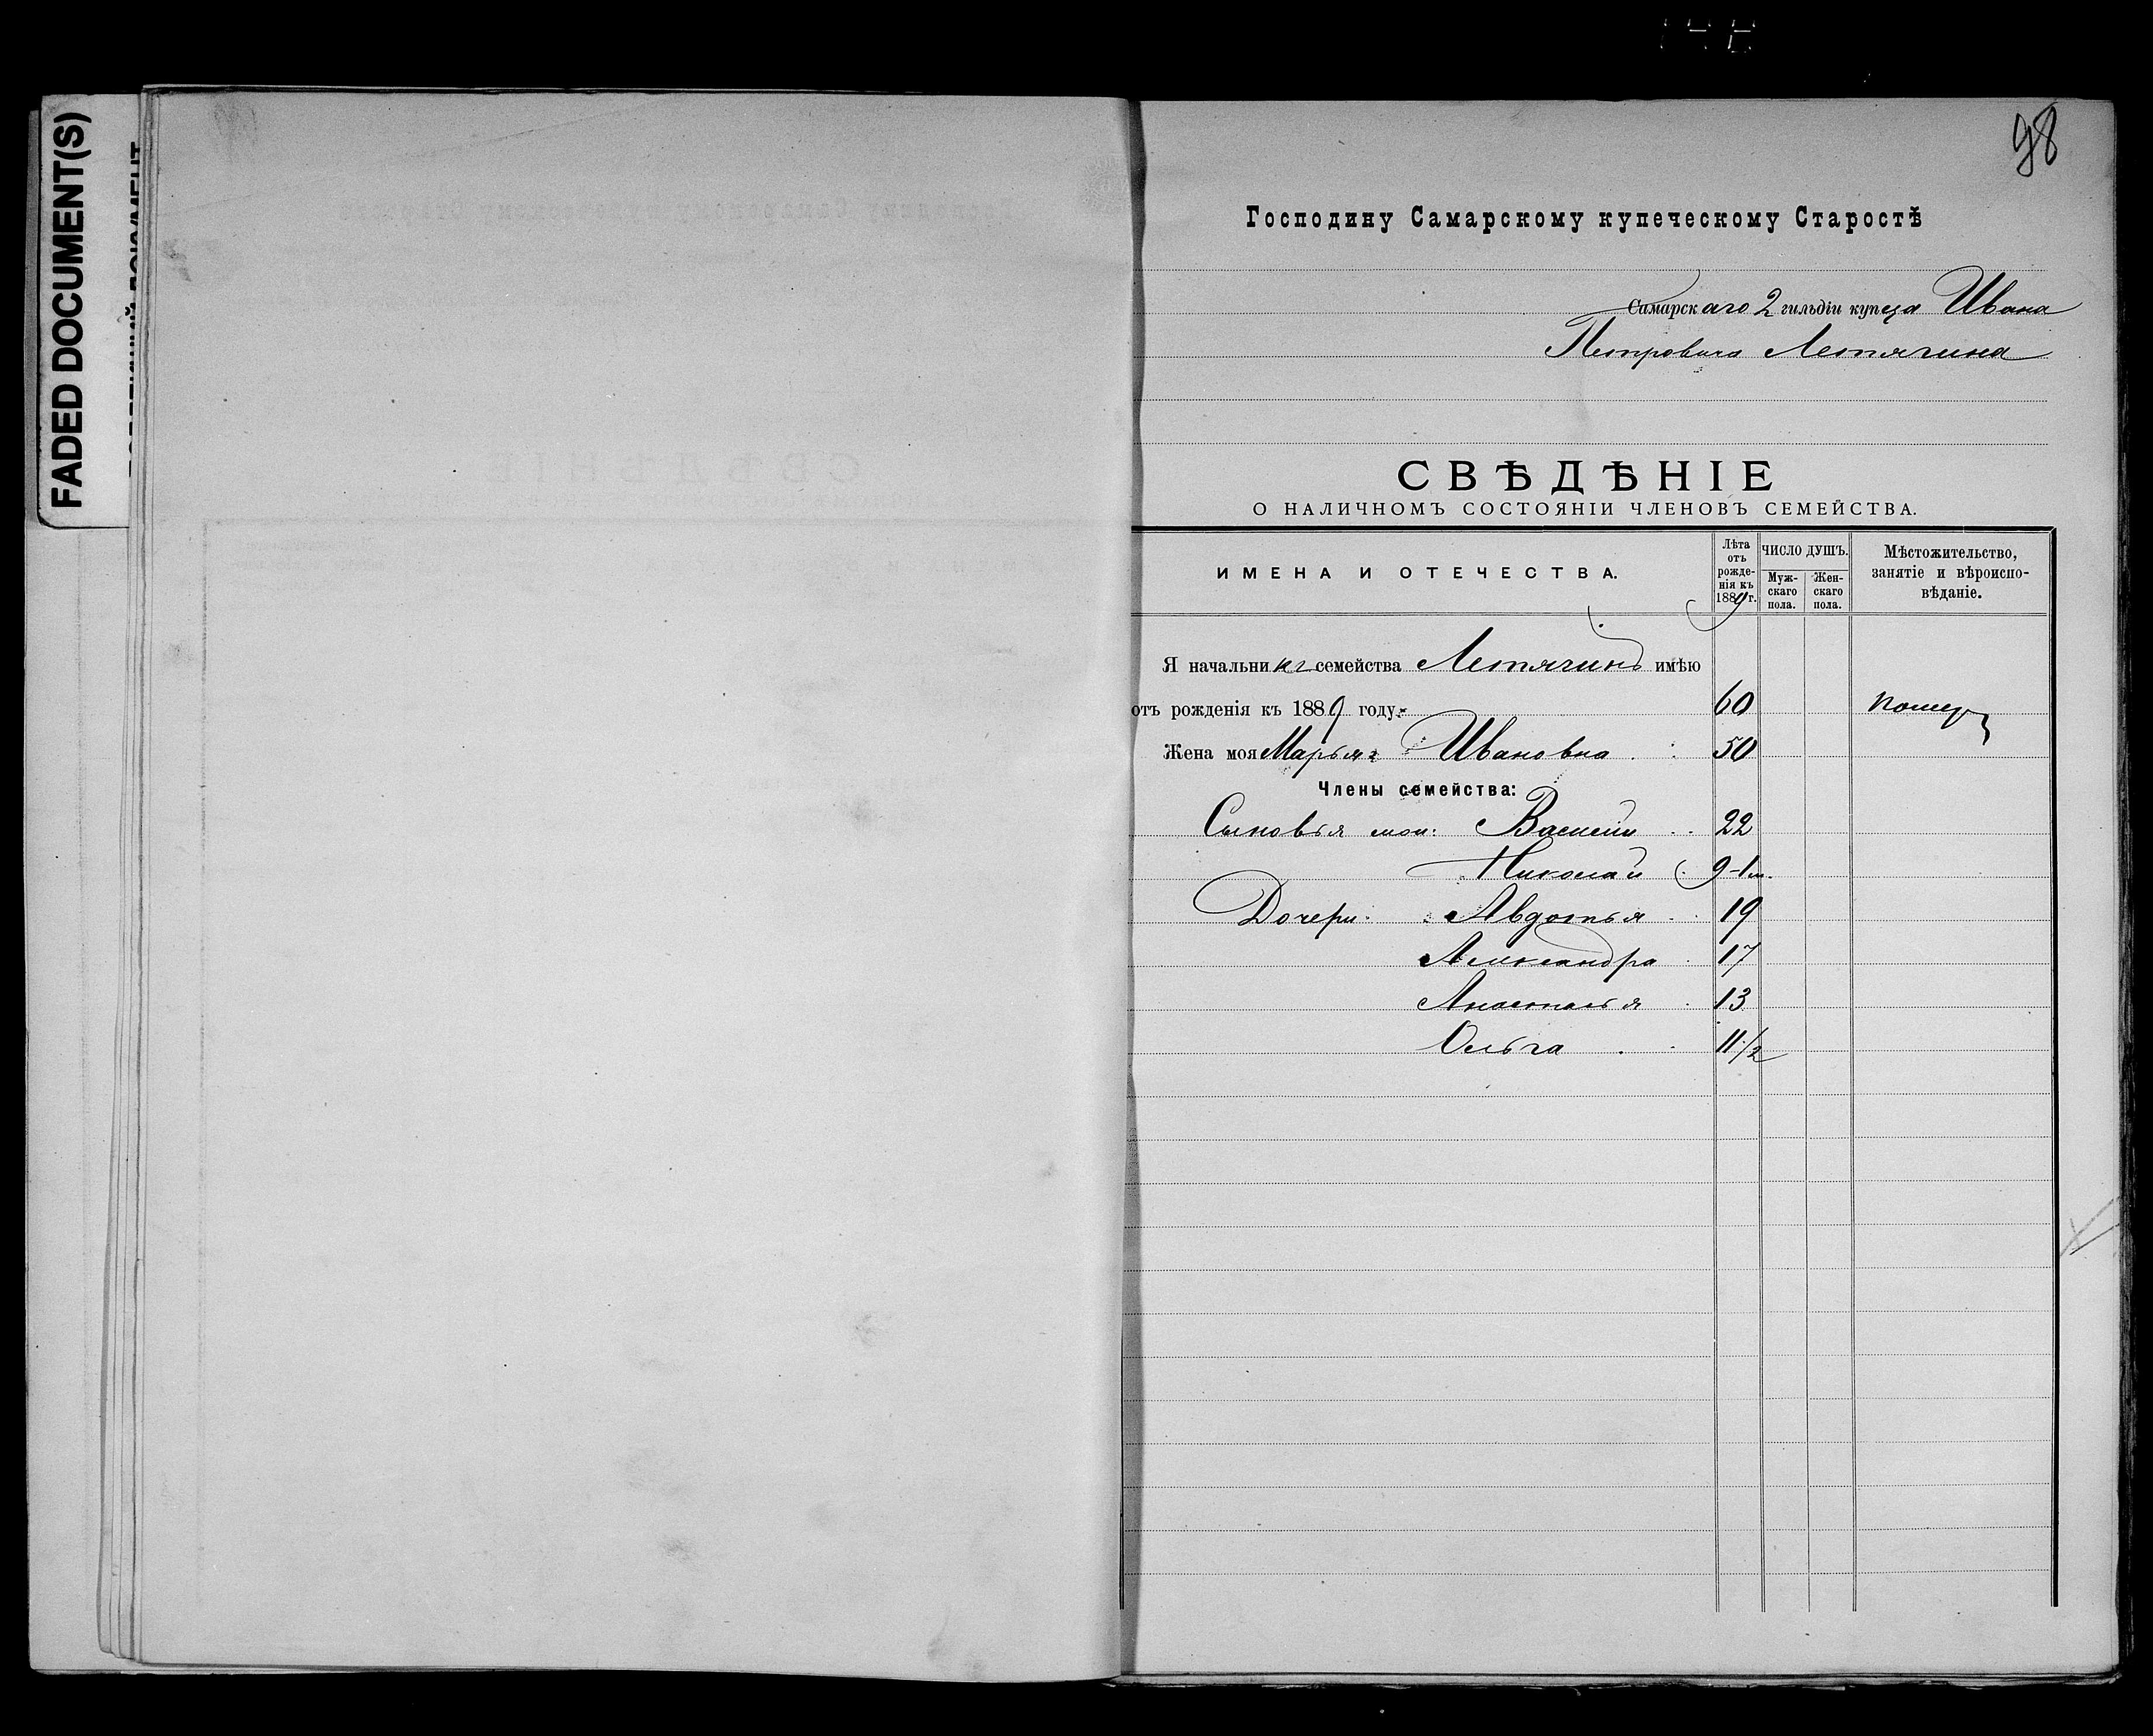 FADED DOCUMENT(S)
98
Господину Самарскому купеческому Старостѣ
Самарскаго 2 гильдіи купца Ивана
Петровича Летягина
СВѢДѢНІЕ
О НАЛИЧНОМЪ СОСТОЯНІИ ЧЛЕНОВЪ СЕМЕЙСТВА.
ИМЕНА И ОТЕЧЕСТВА.
Лѣта отъ рожде-нія къ 1889 г.
ЧИСЛО ДУШЪ.
Муж-скаго пола.
Жен-скаго пола.
Мѣстожительство, занятіе и вѣроиспо-вѣданіе.
Я начальникъ семейства Летягинъ имѣю
отъ рожденія къ 1889 году: 60 помер
Жена моя Марья Ивановна 50
Члены семейства:
Сыновья мои: Василій 22
Николай 9-1м.
Дочери: Авдотья 19
Александра 17
Анастасья 13
Ольга 11 1/2